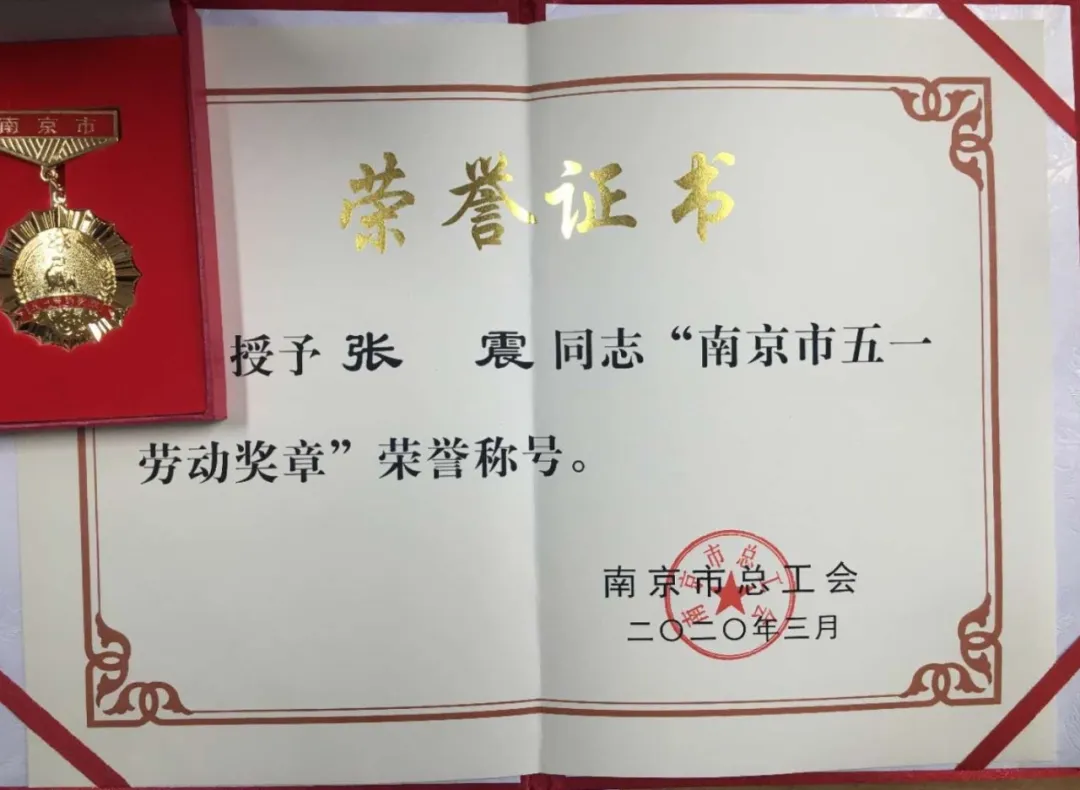 南京市
荣誉证书
授予张 震同志“南京市五一
劳动奖章”荣誉称号。
南京市总工会
二〇二〇年三月
南京市总工会